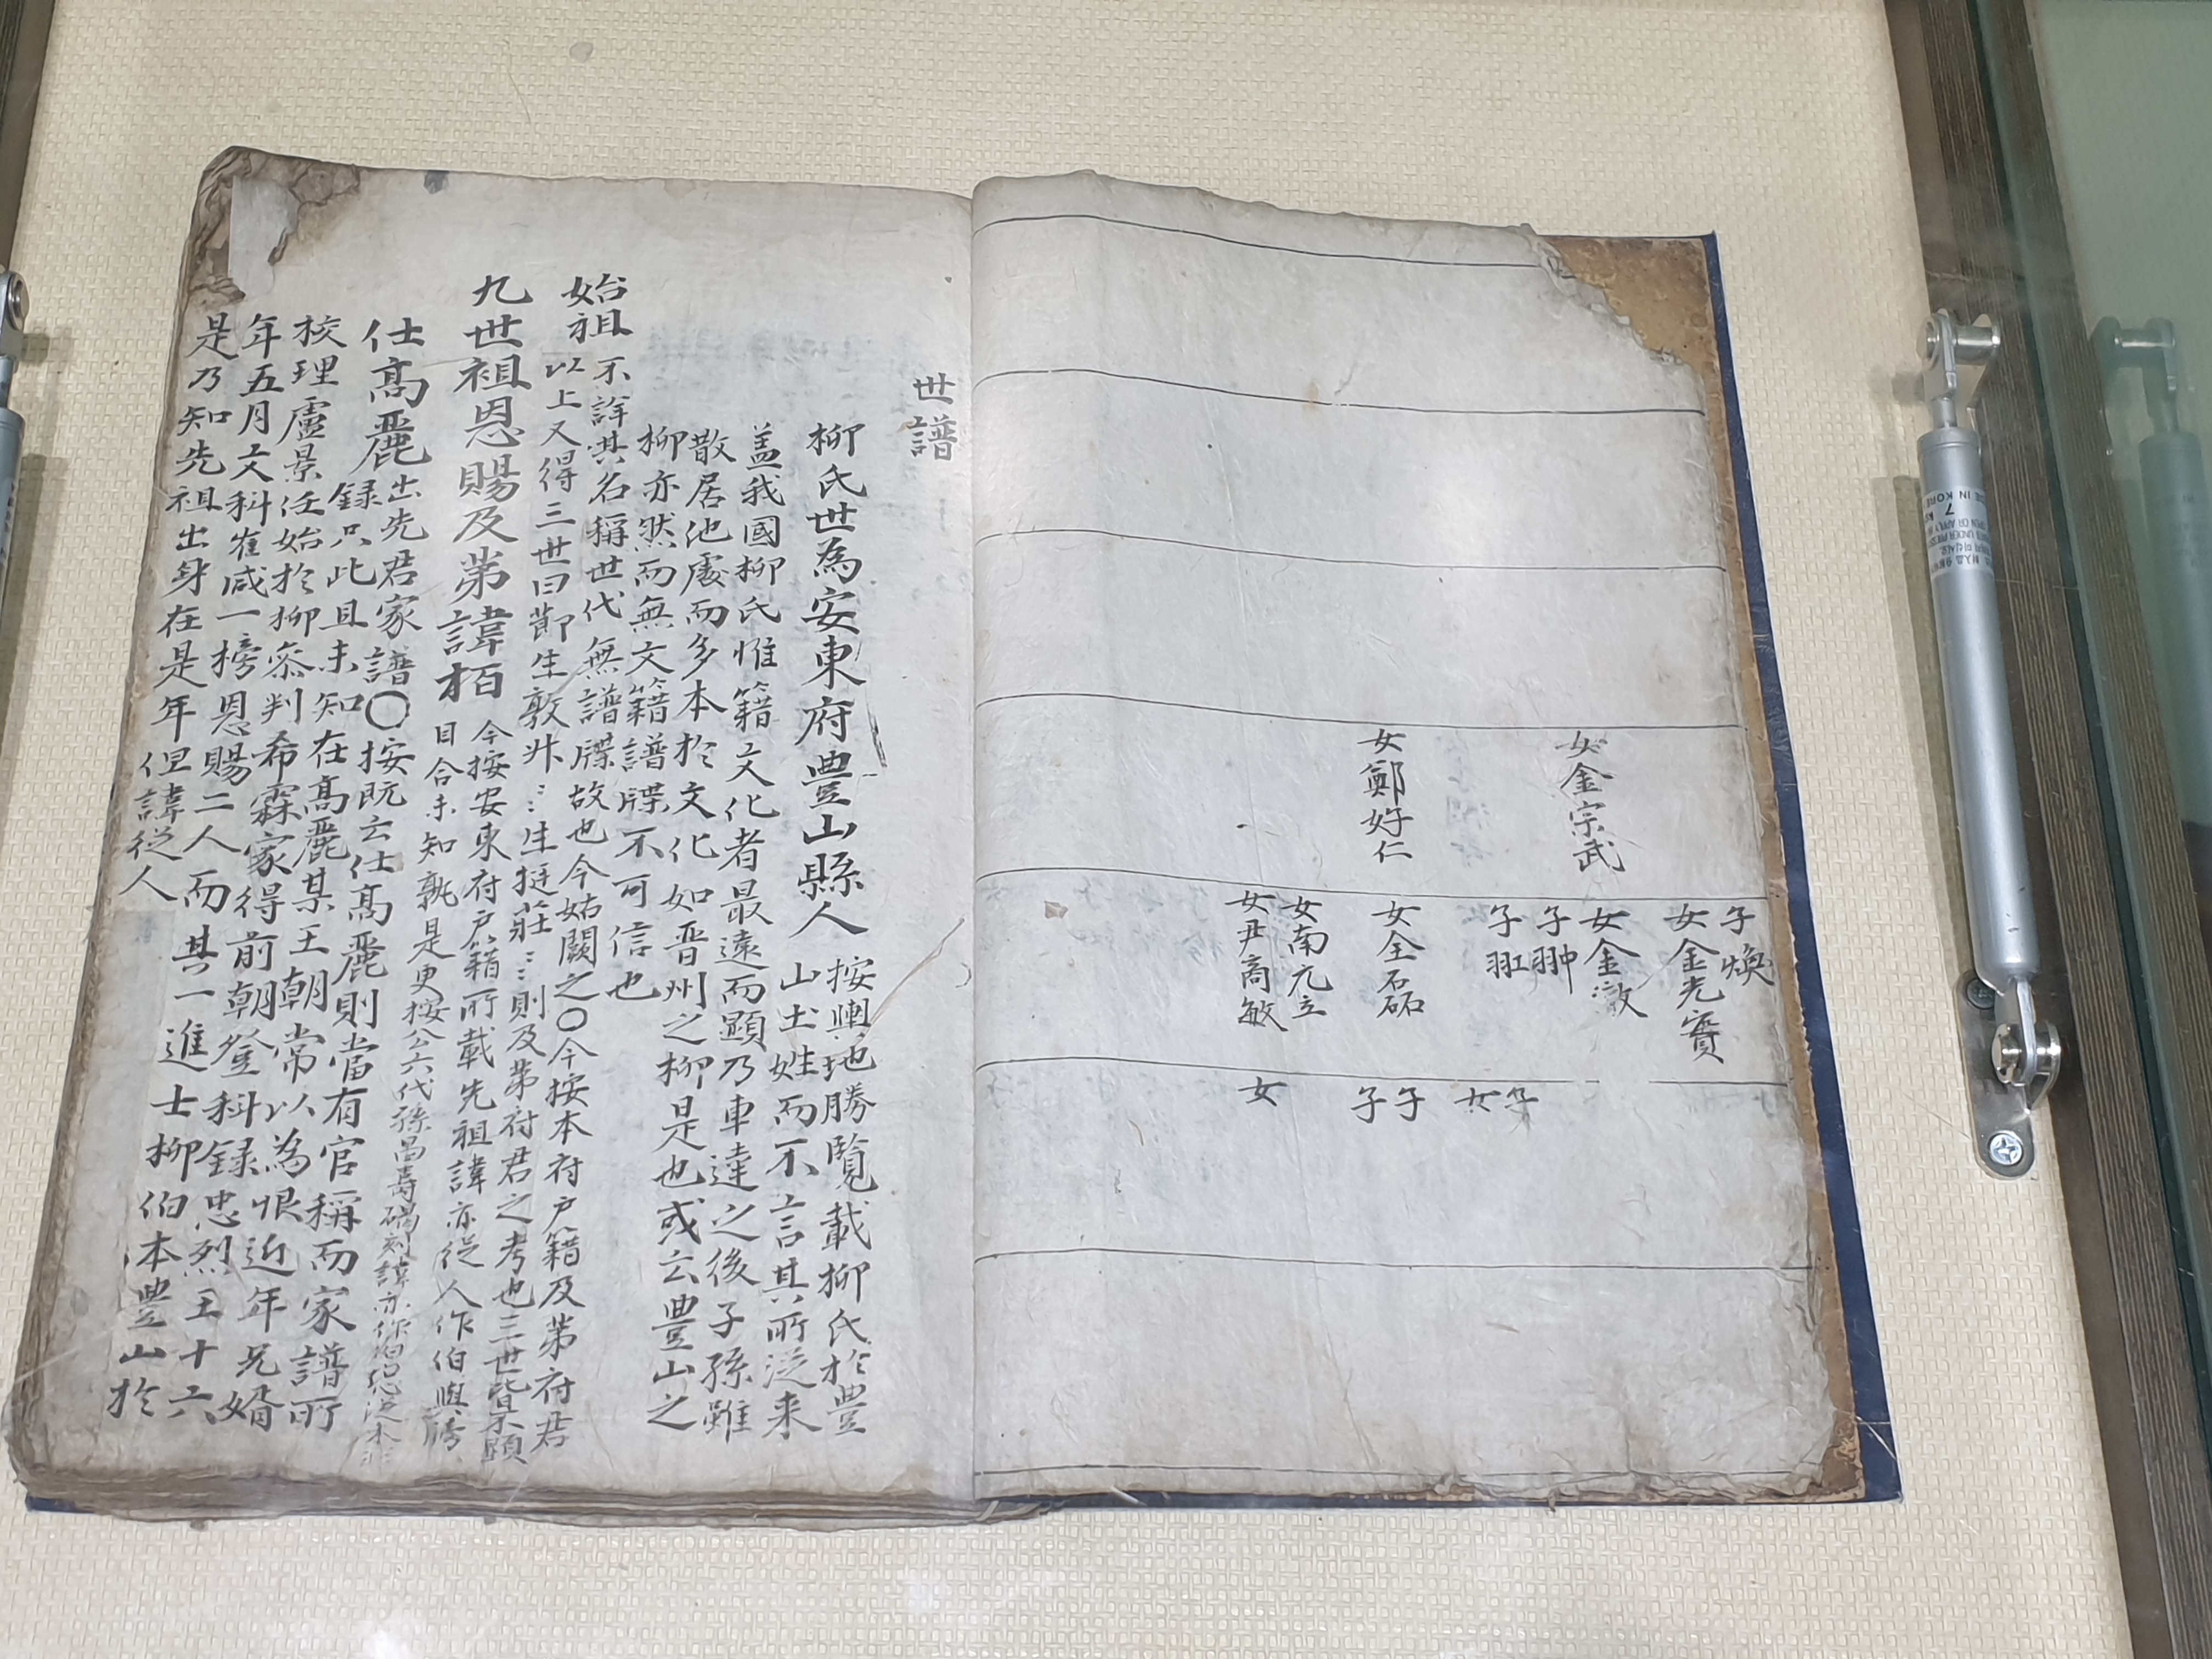 女金宗武
女鄭好仁
子煥
女金光實
女金澈
子翀
子䎺
女全磊
女南九立
女尹商敏
子
女
子
子
女
世譜
柳氏世為安東府豊山縣人 按輿地勝覽載柳氏於豊
山土姓而不言其所従来
盖我國柳氏惟籍文化者最遠而顕乃車達之後子孫雖
散居他處而多本於文化如晋州之柳是也或云豊山之
柳亦然而無文籍譜牒不可信也
始祖 不詳其名稱世代無譜牒故也今姑闕之〇今按本府户籍及第府君
以上又得三世曰節生敦升〻〻生挺莊〻〻則及第府君之考也三世皆
九世祖恩賜及第諱栢 今按安東府户籍所載先祖諱亦従人作伯與
目合未知孰是更按公六代孫昌壽碣刻諱亦作伯
仕高麗出先君家譜〇按既云仕高麗則當有官稱而家譜所
録只此且未知在高麗某王朝常以為恨近年兄婿
校理盧景任始於柳叅判希霖家得前朝登科録忠烈王十六
年五月文科崔咸一榜恩賜二人而其一進士柳伯本豊山於
是乃知先祖出身在是年但諱従人